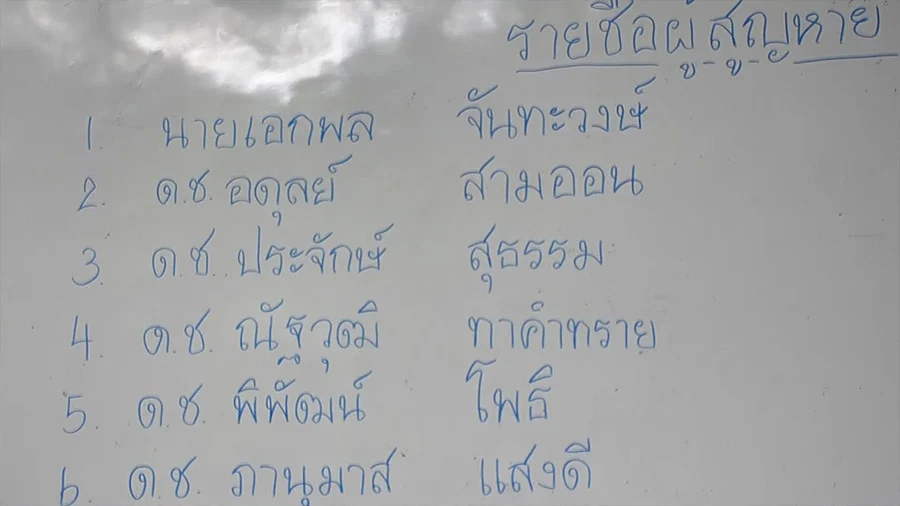 รายชื่อผู้สูญหาย
1. นายเอกพล จันทะวงษ์
2. ด.ช. อดุลย์ สามออน
3. ด.ช. ประจักษ์ สุธรรม
4. ด.ช. ณัฐวุฒิ ทาคำทราย
5. ด.ช. พิพัฒน์ โพธิ
6. ด.ช. ภานุมาส แสงดี